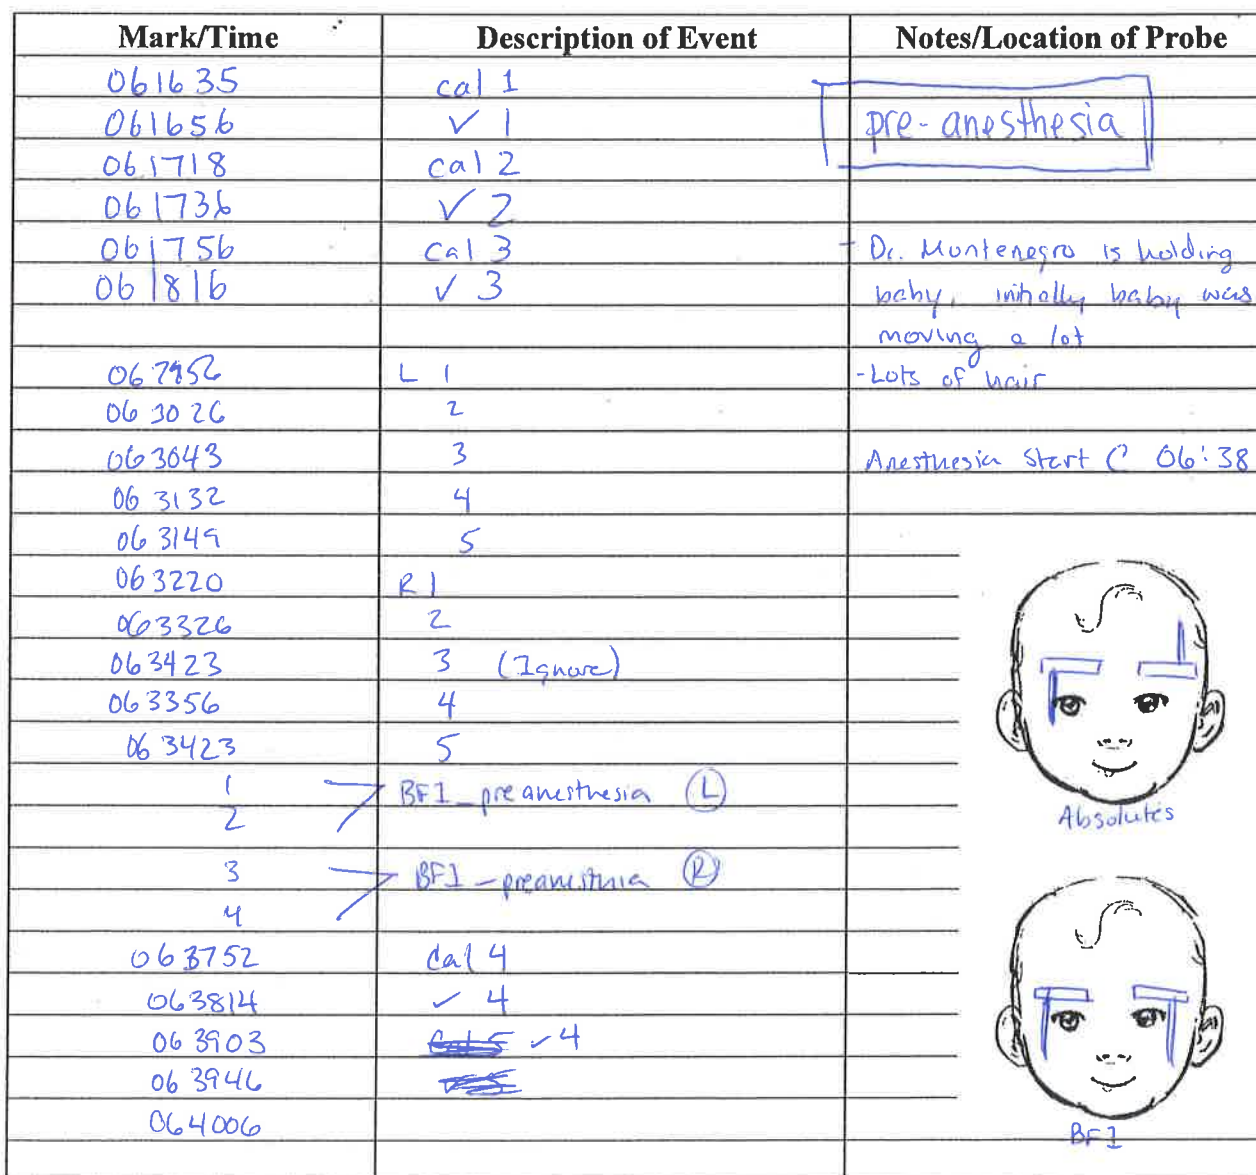 Mark/Time Description of Event Notes/Location of Probe
061635 cal 1
061656 ✓ 1 pre-anesthesia
061718 cal 2
061736 ✓ 2
061756 cal 3 - Dr. Montenegro is holding
061816 ✓ 3 baby, initially baby was
moving a lot
L 1 - Lots of hair
063026 2
063043 3 Anesthesia Start @ 06:38
063132 4
063149 5
063220 R 1
063326 2
063423 3 (Ignore)
063356 4
063423 5
1 BFI_preanesthesia (L)
2
Absolutes
3 BFI_preanesthia (R)
4
063752 Cal 4
063814 ✓ 4
063903 ✓ 4
063946
064006
BFI